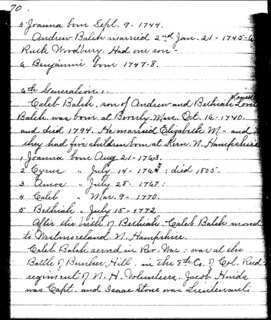 70.
5 Joanna born Sept. 9. 1744.
Andrew Balch married 2nd Jan. 21 - 1745-6
Ruth Woodbury. Had one son -
6 Benjamin born 1747-8.
4th Generation:
Caleb Balch, son of Andrew and Bethiah
Balch was born at Beverly Mass. Oct. 16 - 1740.
and died 1794. He married Elizabeth M- and
they had five children born at Keen N. Hampshire
1 Joanna born Aug 21 - 1763.
2 Cyrus " July 14 - 1765: died 1805.
3 Amos " July 28. 1767:
4 Caleb " Mar. 9. 1770.
5 Bethiah " July 15 - 1772
After the birth of Bethiah - Caleb Balch moved
to Westmoreland N. Hampshire.
Caleb Balch served in Rev. War: was at the
Battle of Bunker Hill: in the 8th Co. of Col.
regiment of N. H. Volunteers. Jacob Hinds
was Capt. and Isaac Stone was Lieutenant.